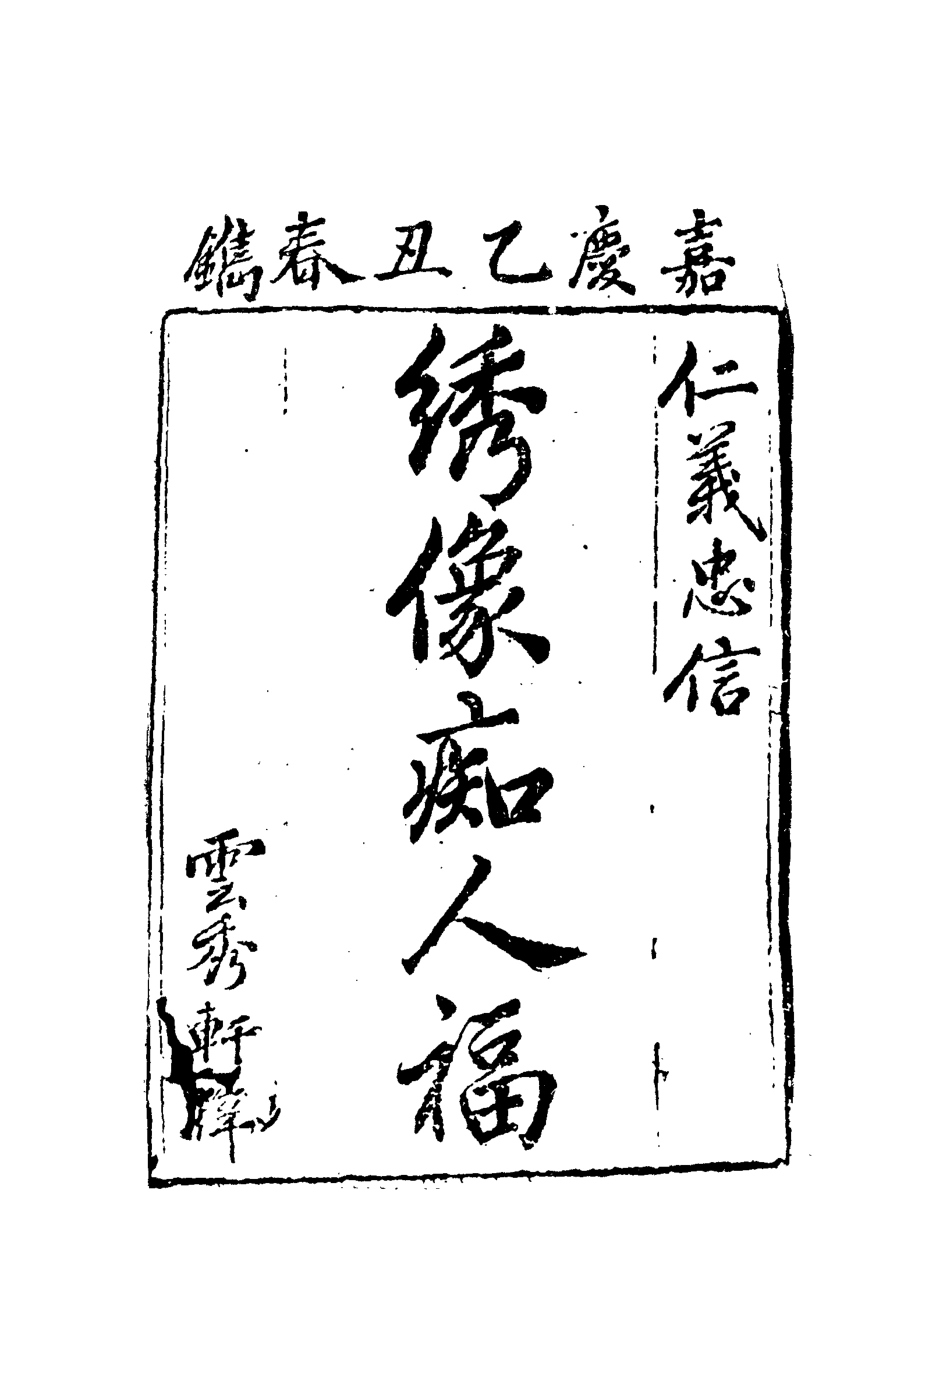 嘉慶乙丑春鐫
仁義忠信
綉像痴人福
雲秀軒